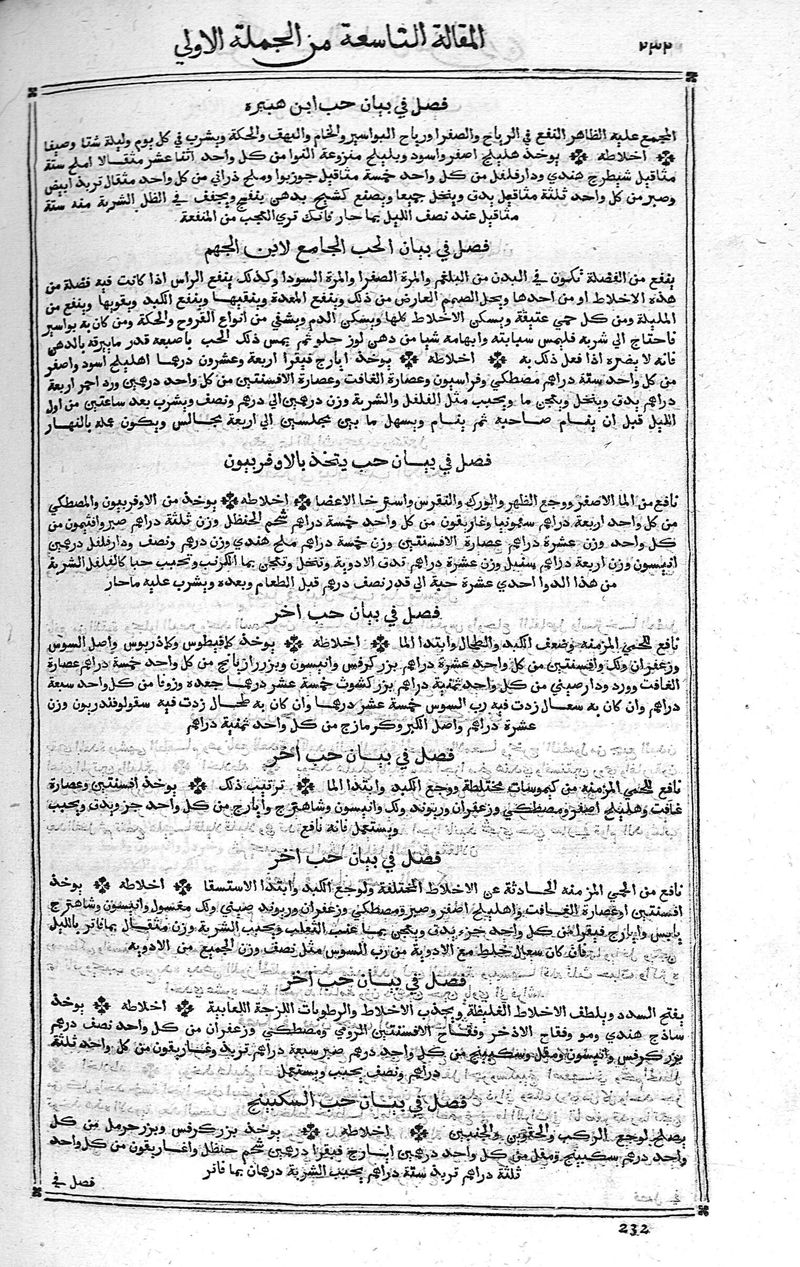 ٢٣٢ المقالة التاسعة من الجملة الاولي
فصل في بيان حب ابن هبيرة
المجمع عليه الظاهر النفع في الرياح والصفرا ورياح البواسير والخام والبهق والحكة ويشرب في كل يوم وليلة شتا وصيفا
اخلاطه يوخذ هليلج اصفر واسود وبليلج منزوعة النوا من كل واحد اثنا عشر مثقالا املج ستة
مثاقيل شيطرج هندي ودارفلفل من كل واحد خمسة مثاقيل جوزبوا وملح ذراني من كل واحد مثقال تربد ابيض
وصبر من كل واحد ثلثة مثاقيل يدق وينخل جميعا ويصنع بدهن بنفسج ويجفف في الظل الشربة منه ستة
مثاقيل عند نصف الليل بما حار فانك تري العجب من المنفعة
فصل في بيان الحب الجامع لابن الجهم
ينفع من الفضلة تكون في البدن من البلغم والمرة الصفرا والمرة السودا وكذلك ينفع الراس اذا كانت فيه فضلة من
هذه الاخلاط او من احدها ويحل الصمم العارض من ذلك وينفع المعدة وينقيها وينفع الكبد ويقويها وينفع من
المليلة ومن كل حمي عتيقة ويسكن الاخلاط كلها ويسكن الدم ويشفي من انواع القروح والحكة ومن كان به بواسير
فاحتاج الي شربه فليمس سبابته وابهامه شيا من دهن لوز حلو ثم يمس ذلك الحب باصبعه قدر ما يبرقه بالدهن
فانه لا يضره اذا فعل ذلك به اخلاطه يوخذ ايارج فيقرا اربعة وعشرون درهما اهليلج اسود واصفر
من كل واحد ستة دراهم مصطكي وفراسيون وعصارة الغافت وعصارة الافسنتين من كل واحد درهمين ورد احمر اربعة
دراهم يدق وينخل ويعجن ما ويحبب مثل الفلفل والشربة وزن درهمين الي درهم ونصف ويشرب بعد ساعتين من اول
الليل قبل ان ينام صاحبه ثم ينام ويسهل ما بين مجلسين الي اربعة مجالس ويكون عمله بالنهار
فصل في بيان حب يتخذ بالاوفربيون
نافع من الما الاصفر ووجع الظهر والورك والنقرس واسترخا الاعضا اخلاطه يوخذ من الاوفربيون والمصطكي
من كل واحد اربعة دراهم سقمونيا وغاريقون من كل واحد خمسة دراهم شحم الحنظل وزن ثلثة دراهم صبر وافثيمون من
كل واحد وزن عشرة دراهم عصارة الافسنتين وزن خمسة دراهم ملح هندي وزن درهم ونصف ودارفلفل درهمين
انيسون وزن اربعة دراهم سنبل وزن عشرة دراهم تدق الادوية وتنخل وتعجن بما الكرنب وتحبب حبا كالفلفل الشربة
من هذا الدوا احدي عشرة حبة الي قدر نصف درهم قبل الطعام وبعده ويشرب عليه ما حار
فصل في بيان حب اخر
نافع للحمي المزمنه وضعف الكبد والطحال وابتدا الما اخلاطه يوخذ كمافيطوس وكماذريوس واصل السوس
وزعفران ولك وافسنتين من كل واحد عشرة دراهم بزر كرفس وانيسون وبزر رازيانج من كل واحد خمسة دراهم عصارة
الغافت وورد ودارصيني من كل واحد ثمنية دراهم بزر كشوث خمسة عشر درهما جعده وزوفا من كل واحد سبعة
دراهم وان كان به سعال زدت فيه رب السوس خمسة عشر درهما وان كان به طحال زدت فيه سقولوفندريون وزن
عشرة دراهم واصل الكبر وكرمازج من كل واحد ثمنية دراهم
فصل في بيان حب اخر
نافع للحمي المزمنه من كيموسات مختلطة ووجع الكبد وابتدا الما ترتيب ذلك يوخذ افسنتين وعصارة
غافت وهليلج اصفر ومصطكي وزعفران وريوند ولك وانيسون وشاهترج وايارج من كل واحد جز ويدق ويحبب
ويستعمل فانه نافع
فصل في بيان حب اخر
نافع من الحمي المزمنه الحادثة عن الاخلاط المختلفة ولوجع الكبد وابتدا الاستسقا اخلاطه يوخذ
افسنتين او عصارة الغافت واهليلج اصفر وصبر ومصطكي وزعفران وريوند صيني ولك مغسول وانيسون وشاهترج
يابس وايارج فيقرا من كل واحد جزء يدق ويعجن بما عنب الثعلب ويحبب الشربة وزن مثقال بما فاتر بالليل
فان كان سعال خلط مع الادوية من رب السوس مثل نصف وزن الجميع من الادوية
فصل في بيان حب اخر
يفتح السدد ويلطف الاخلاط الغليظة ويجذب الاخلاط والرطوبات اللزجة اللعابية اخلاطه يوخذ
ساذج هندي ومو وفقاح الاذخر وفقاح الافسنتين الرومي ومصطكي وزعفران من كل واحد نصف درهم
بزر كرفس وانيسون ومقل وسكبينج من كل واحد درهم صبر سبعة دراهم تربد وغاريقون من كل واحد ثلثة
دراهم ونصف يحبب ويستعمل
فصل في بيان حب السكبينج
يصلح لوجع الركب والحقوين والجنبين اخلاطه يوخذ بزر كرفس وبزر حرمل من كل
واحد درهم سكبينج ومقل من كل واحد درهمين ايارج فيقرا درهمين شحم حنظل وغاريقون من كل واحد
ثلثة دراهم تربد ستة دراهم يحبب الشربة درهمان بما فاتر
فصل في
232